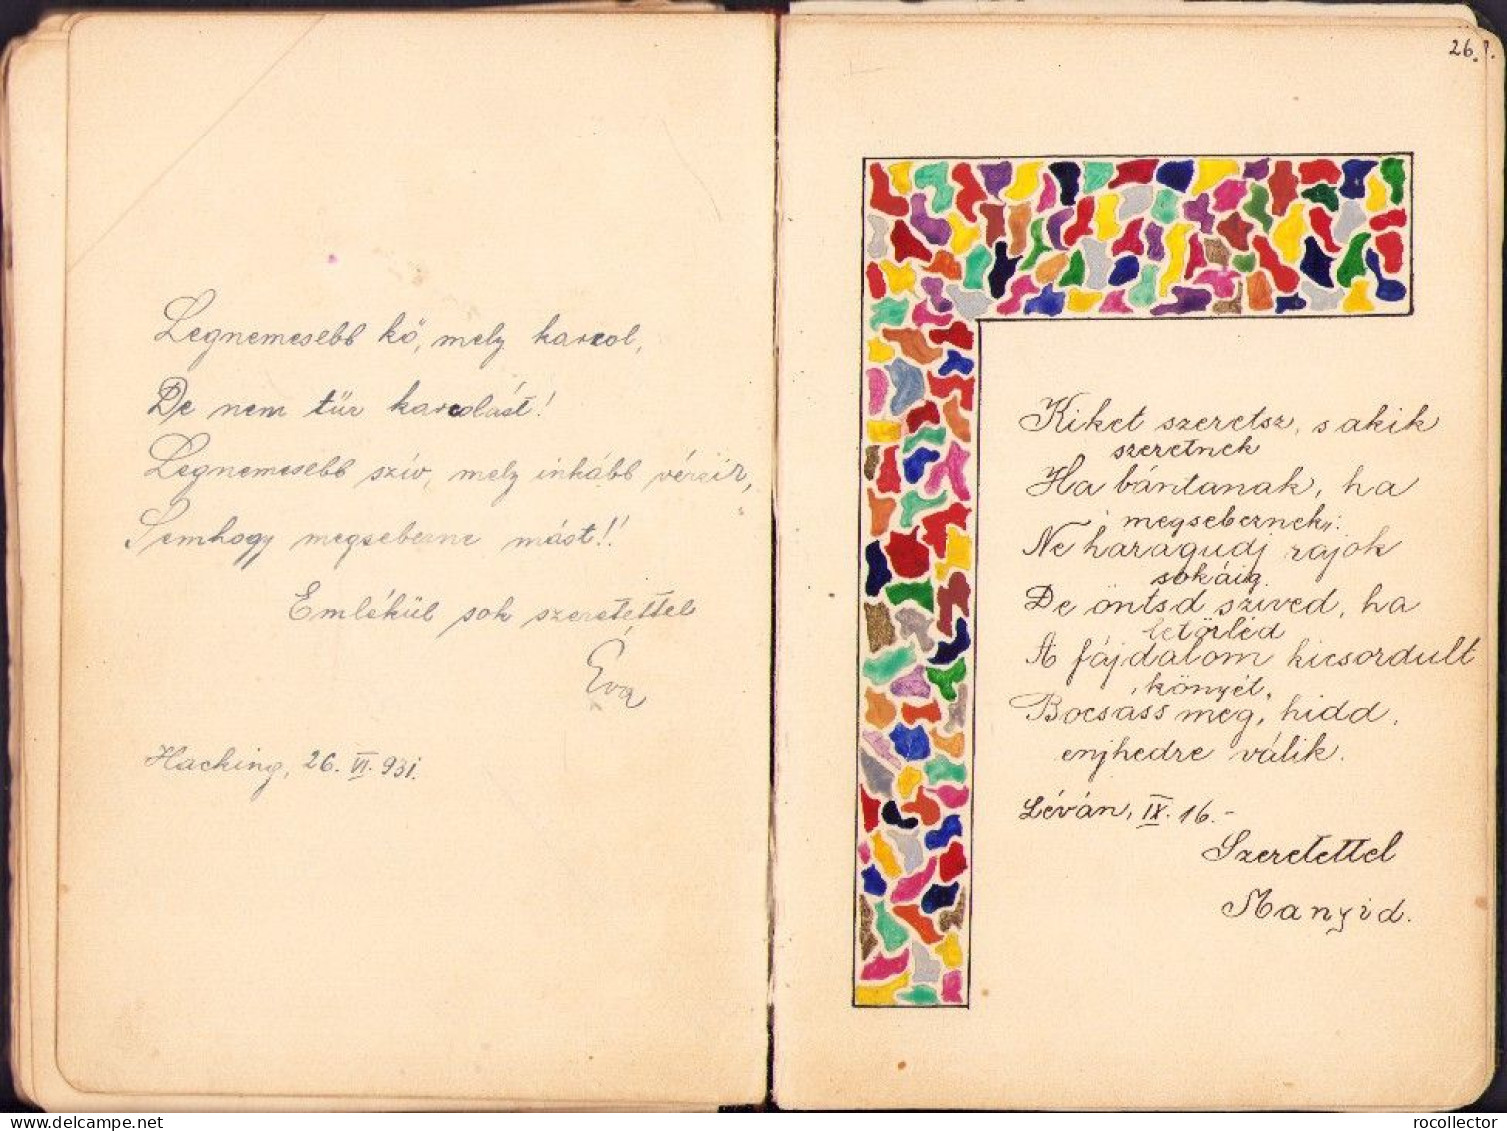 Legnemesebb kő, mely karcol,
De nem tűr karcolást!
Legnemesebb szív, mely inkább vérzik,
Semhogy megsebezne mást!!
Emlékül sok szeretettel
Éva
Hacking, 26. VI. 931.
26.
Kiket szeretsz, s akik
szeretnek
Ha bántanak, ha
megsebeznek,:
Ne haragudj rajok
sokáig.
De öntsd szived, ha
letörléd
A fájdalom kicsordult
könyét,
Bocsass meg, hidd,
enyhedre válik.
Léván, IX. 16.-
Szeretettel
Manyid.
rocollector